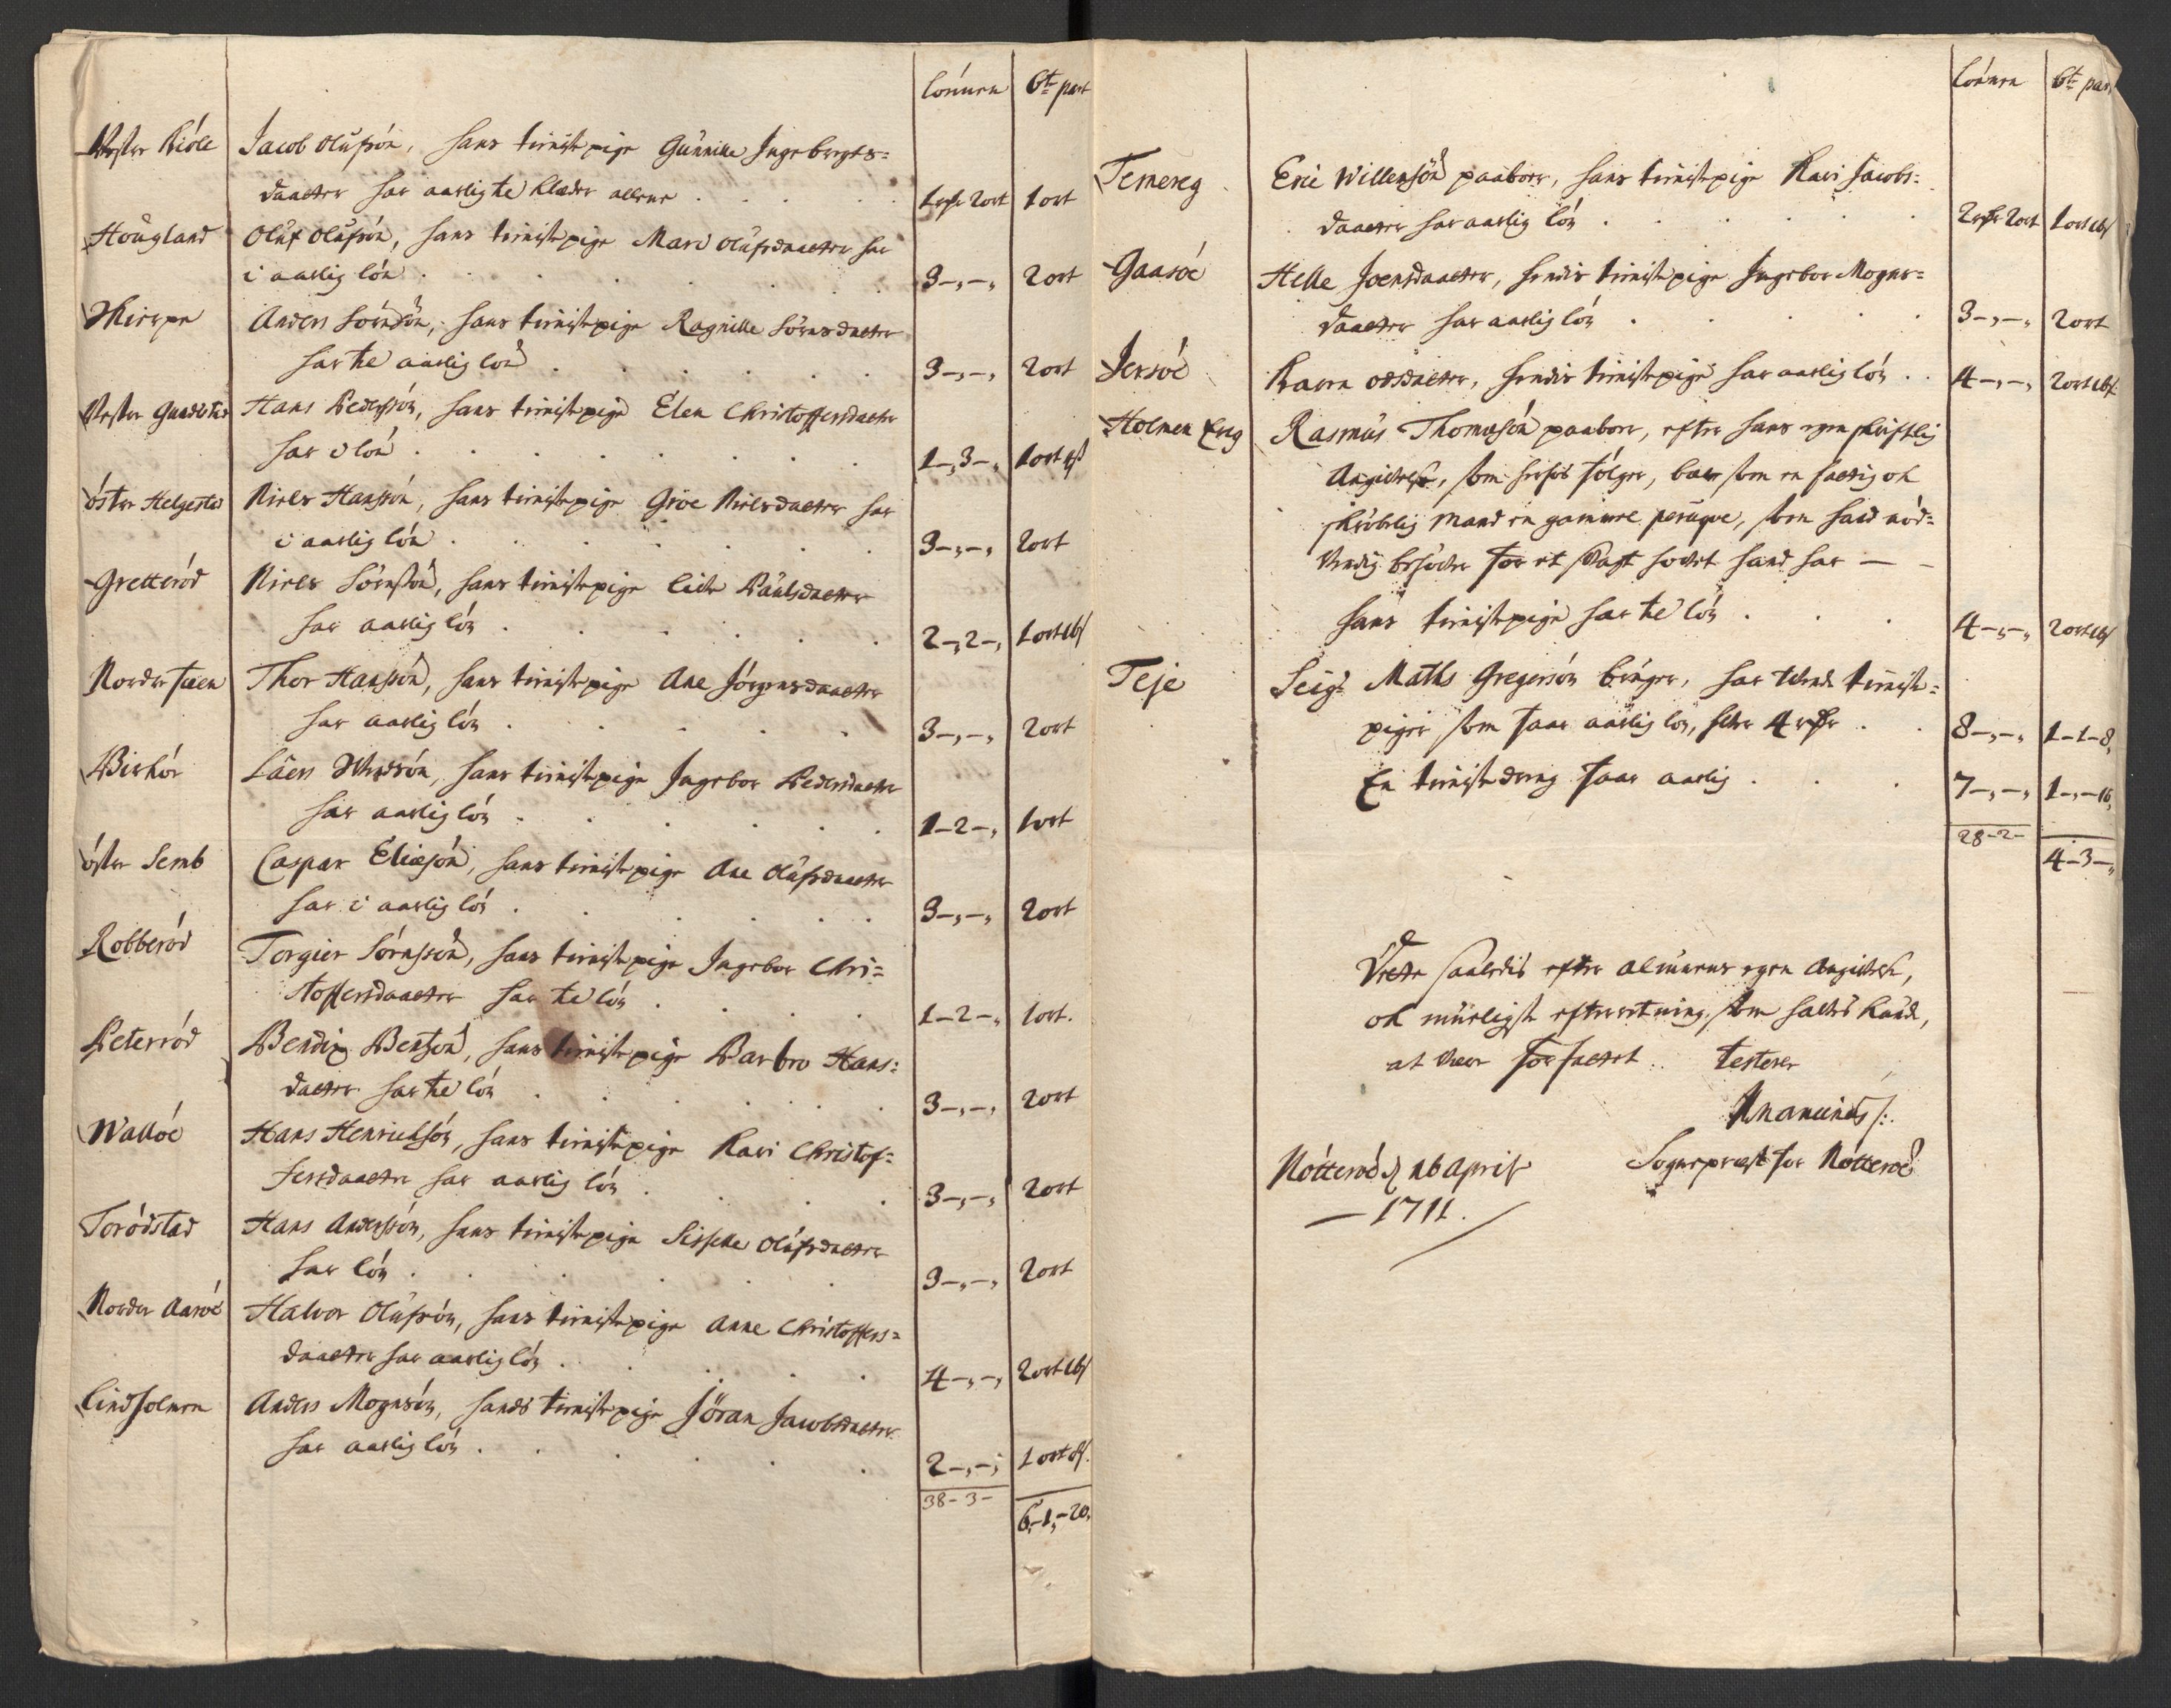 Lónnen 6te part
Vester Kióle Jacob Olufsón, hans tieniste pige Gunnille Ingebregts=
daatter har aarligte klæder allene 1 rdr 2 ort 1 ort
Hougland Oluf Olufsón, hans tieniste pige Mari Olufsdaatter har
i aarlig lón 3-,-, 2 ort
Skierpe Anders Sórensón, hans tieniste pige Ragnille Sórensdatter
har te aarlig lón 3-,-, 2 ort
Vester Hans Pedersón, hans tieniste pige Elen Christoffersdatter
har i lón 1-,3-, 1 ort
óster Helgestad Niels Hansón, hans tieniste pige Gróe Nielsdatter har
i aarlig lón 3-,-, 2 ort
Gretteród Niels Sórensón, hans tieniste pige Lidie Paulsdatter
har aarlig lón 2-,2-, 1 ort 16 s
Norder Thor Hansón, hans tieniste pige Ane Jórgensdaatter
har aarlig lón 3-,-, 2 ort
Bierkór Laers hans tieniste pige Ingebor Pedersdatter
har aarlig lón 1-2-, 1 ort
óster Semb Caspar Eliesón, hans tieniste pige Ane Olufsdaatter
har i aarlig lón 3-,-, 2 ort
Robberód Torgier Sórensón, hans tieniste pige Ingebor Chri=
stoffersdaatter har te lón 1-2-, 1 ort.
Peterród Bendix Bentsón, hans tieniste pige Barbro Hans=
datter har te lón 3-,-, 2 ort
Wallóe Hans Henrichsón, hans tieniste pige Kari Christof=
fersdaatter har aarlig lón 3-,-, 2 ort
Toródstad Hans Andersón, hans tieniste pige Sisselle Olufsdatter
har lón 3-,-, 2 ort
Norder Aaróe Halvor Olufsón, hans tieniste pige Anne Christoffers=
daatter har aarlig lón 4-,-, 2 ort 16 s
Lindholmen Anders Mogensón, hands tieniste pige Jóran Jacobsdatter
har aarlig lón 2-,-, 1 ort 8 s.
38-3- 6-1,-20,
Lónnen 6te par
Temereg Eric Willemsón paaboer, hans tieniste pige Kari Jacobs=
daatter har aarlig lón 2 rdr 2 ort 1 ort 16 s
Gaasóe Helle Joensdaatter, hendis tieniste pige Ingebor Mogens=
daatter har aarlig lón 3-,-, 2 ort
Jersóe Karen Odsdatter, hendis tieniste pige har aarlig lón 4-,-, 2 ort 16 s
Holmen Rasmus Thomasón paaboer, efter hans egen skriftlig
Angivelse, som herhos fólger, bær som en fattig oh
skróbelig mand en gammel peruqve, som hand nód=
vendig behóver for et svagt hovet hand har —
hans tieniste pige har te lón 4-,-, 2 ort 16 s
Teje Seigr Maths Gregersón Bringer, har tvende tieniste=
piger som faar aarlig lón, hver 4 rdr 8-,-, 1-1-8,
En tieniste dreng faar aarlig 7-,-, 1-,-16,
28-2- 4-3-,
Dette saaledis efter alles egen Angivelse,
oh efterretning, som havis kunde,
at være forfattet. testerer
Nótteróe d 26 April Sognepræst for Nótteróe
— 1711.